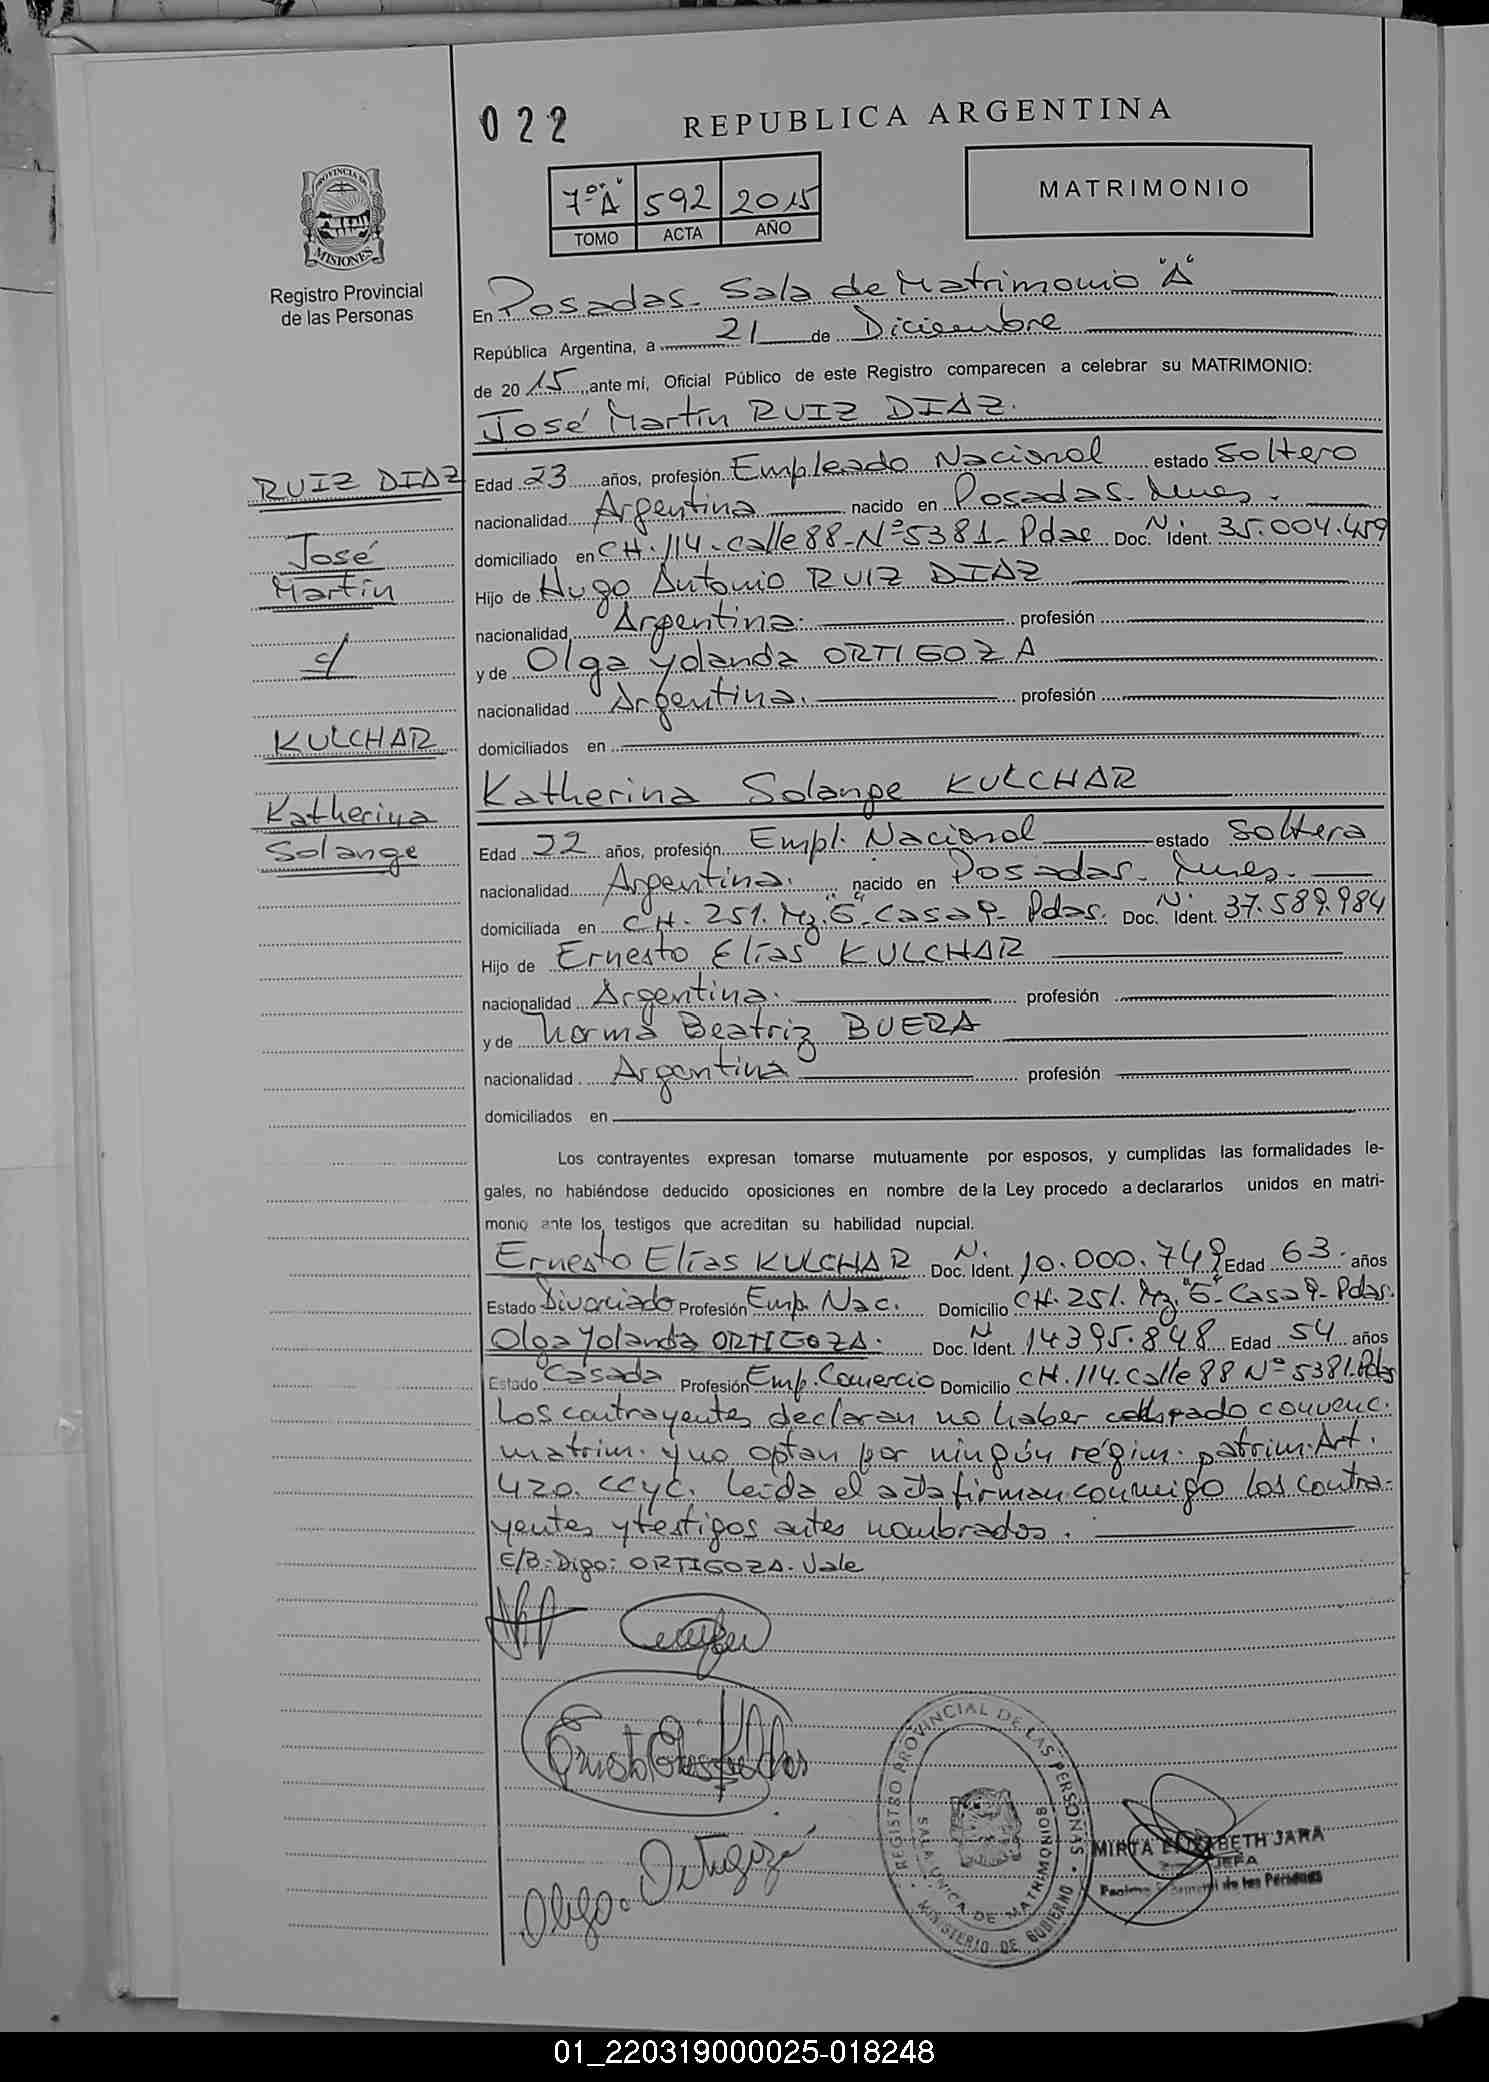 022
REPUBLICA ARGENTINA
7º "A" 592 2015
TOMO ACTA AÑO
MATRIMONIO
PROVINCIA DE
MISIONES
Registro Provincial
de las Personas
En Posadas. Sala de Matrimonio "A"
República Argentina, a 21 de Diciembre
de 2015, ante mí, Oficial Público de este Registro comparecen a celebrar su MATRIMONIO:
José Martín RUIZ DIAZ.
RUIZ DIAZ
José
Martín
c/
KULCHAR
Katherina
Solange
Edad 23 años, profesión Empleado Nacional estado Soltero
nacionalidad Argentina nacido en Posadas. Mnes.
domiciliado en CH. 114. Calle 88-Nº 5381- Pdas Doc. N. Ident. 35.004.459
Hijo de Hugo Antonio RUIZ DIAZ
nacionalidad Argentina. profesión
y de Olga Yolanda ORTIGOZA
nacionalidad Argentina. profesión
domiciliados en
Katherina Solange KULCHAR
Edad 22 años, profesión Empl. Nacional estado Soltera
nacionalidad Argentina. nacido en Posadas. Mnes.
domiciliada en CH. 251. Mz. "G"-Casa 9- Pdas. Doc. N. Ident. 37.589.984
Hijo de Ernesto Elías KULCHAR
nacionalidad Argentina. profesión
y de Norma Beatriz BUERA
nacionalidad Argentina profesión
domiciliados en
Los contrayentes expresan tomarse mutuamente por esposos, y cumplidas las formalidades le-
gales, no habiéndose deducido oposiciones en nombre de la Ley procedo a declararlos unidos en matri-
monio ante los testigos que acreditan su habilidad nupcial.
Ernesto Elías KULCHAR Doc. N. Ident. 10.000.749 Edad 63. años
Estado Divorciado Profesión Emp. Nac. Domicilio CH. 251. Mz. "G"- Casa 9- Pdas.
Olga Yolanda ORTIGOZA. Doc. N Ident. 14395.848 Edad 54 años
Estado Casada Profesión Emp. Comercio Domicilio CH. 114. Calle 88 Nº 5381. Pdas
Los contrayentes declaran no haber convenc.
matrim. y no optan por ningún régim. patrim. Art.
420. CCyC. Leída el acta firman conmigo los contra-
yentes y testigos antes nombrados.
E/B: Digo: ORTIGOZA. Vale
Olga Ortigoza
REGISTRO PROVINCIAL DE LAS PERSONAS
SALA UNICA DE MATRIMONIOS
MINISTERIO DE GOBIERNO
MIRTA ELIZABETH JARA
JEFA
de las Personas
01_220319000025-018248